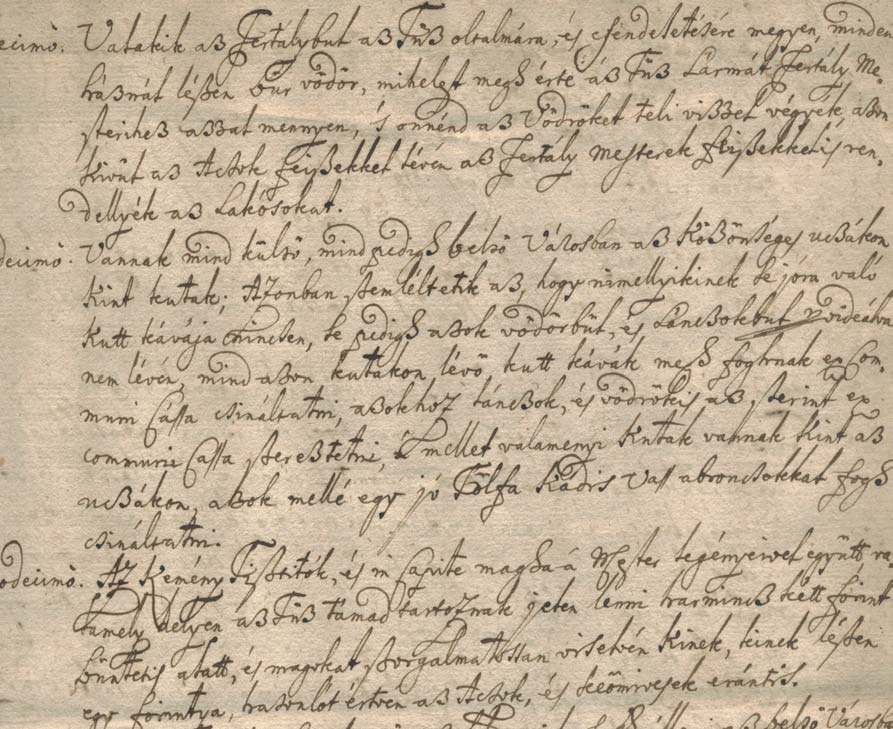 ecimò. Valakik az Fertálybul az Tüz oltalmára, és csendeletésére megyen, minden
háznál lészen bür vödör, mihelyst megh érté áz Tüz Larmát Fertály Me-
sterihez azzal mennyen, 's onnénd az Vödröket teli vizzel végyék, azon
kivül az Acsok Feiszekkel lévén az Fertály Mesterek Feiszekkelis ren-
dellyék az Lakósokat.
decimò. Vannak mind külsö, mind pedigh belsö Városban az Közönséges uczákon
Kint kutak; Azonban szemléltetik az, hogy nimellyikinek se jóra való
Kutt kávája nincsen, se pedigh azok vödörbül, és Lánczokbul
nem lévén, mind azon kutakon lévö kutt kávák megh foghnak ex Com-
muni Cassa csináltatni, azokhoz lánczok, és vödrökis az szerint ex
communi Cassa szereztetni, mellet valamenyi Kutak vannak Kint az
uczákon, azok mellé egy jó Tölfa Kádis Vass abroncsokkal fogh
csináltatni.
odecimò. Az Kemény Tisztitók, és in Capite magha á Mester legényeivel együtt, va-
lamely helyen az Tüz támad tartoznak jelen lenni harmincz kétt forint
büntetés alatt, és magokat szorgalmatossan viselvén Kinek, kinek lészen
egy forintya, hasonlót értven az Acsok, és keömivesek erántis.
belsö Városba